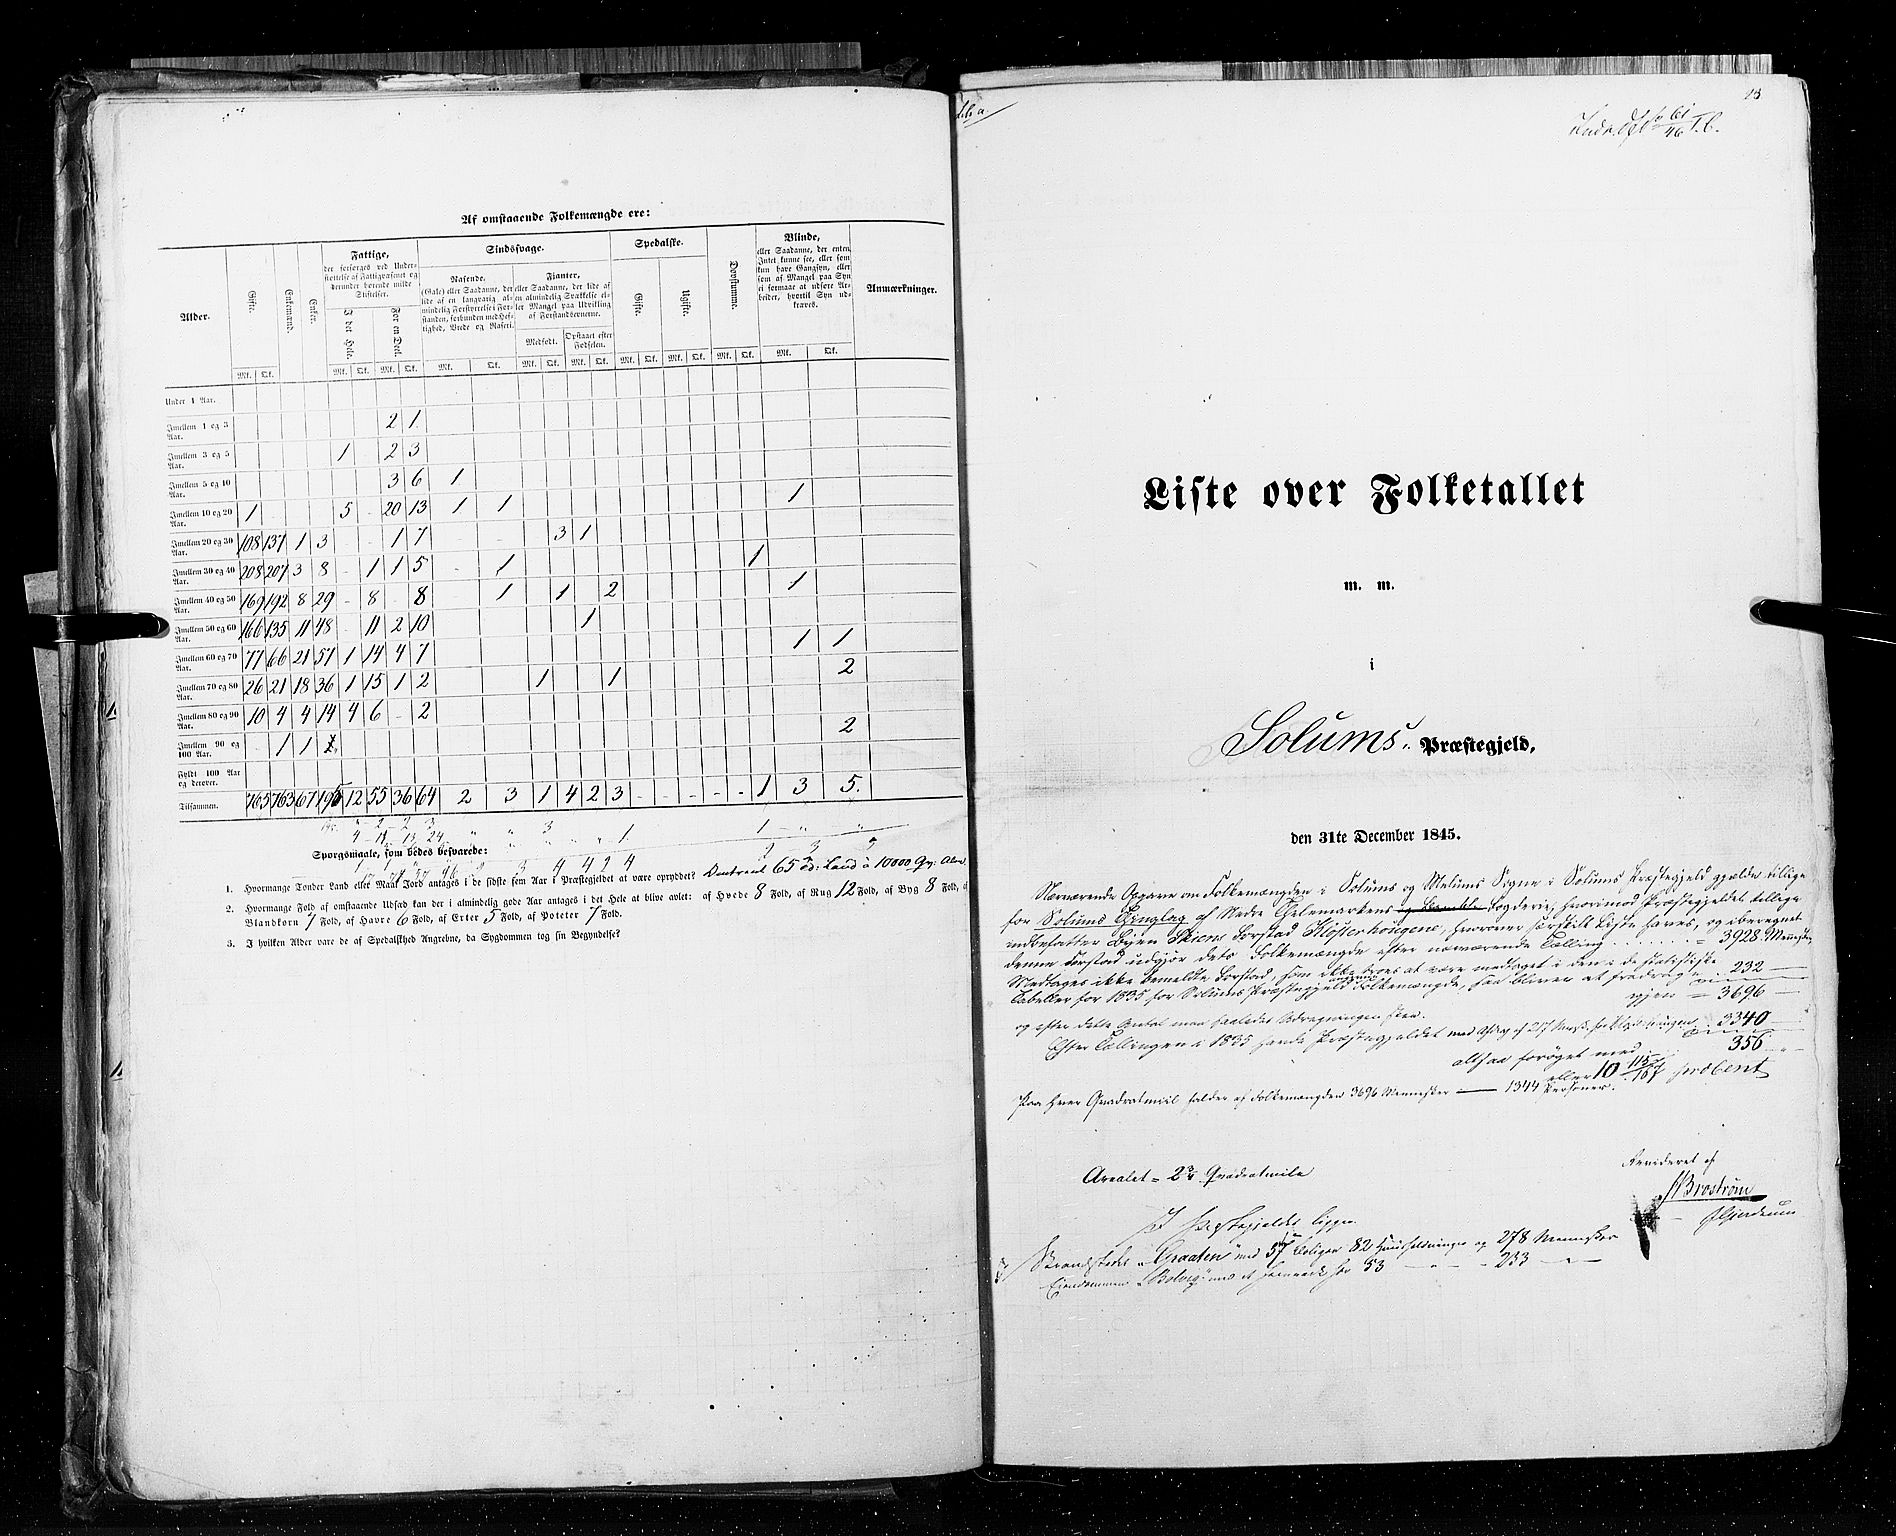 Af omstaaende Folkemængde ere:
Alder.
Gifte.
Enkemænd.
Enker.
Fattige,
der forsørges ved Under-
støttelse af Fattigvæsenet og
derunder hørende milde
Stiftelser.
I det Hele.
For en Deel.
Sindssvage.
Rasende.
(Gale) eller Saadanne, der
lide af en langvarig al-
mindelig Forstyrrelse i For-
standen, forbunden med Hef-
tighed, Vrede og Raseri.
Fianter,
eller Saadanne, der lide af
en almindelig Svækkelse el-
ler Mangel paa Udvikling
af Forstandsevnerne.
Medfødt.
Opstaaet efter
Fødselen.
Spedalske.
Gifte.
Ugifte.
Døvstumme.
Blinde,
eller Saadanne, der enten
Intet kunne see, eller som
kun have Gangsyn, eller
som af Mangel paa Syn
ei formaae at udføre Ar-
beider, hvortil Syn ud-
kræves.
Anmærkninger.
Mk. Qk. Mk. Qk. Mk. Qk. Mk. Qk. Mk. Qk. Mk. Qk. Mk. Qk. Mk. Qk. Mk. Qk. Mk. Qk.
Under 1 Aar.
Imellem 1 og 3 Aar. 2 1.
Imellem 3 og 5 Aar. 1 - 2 3
Imellem 5 og 10 Aar. 3 6 1
Imellem 10 og 20 Aar. 1 5 - 20 13 1 1 1
Imellem 20 og 30 Aar. 108 137 1 3 - - 1 7 3 1
Imellem 30 og 40 Aar. 208 207 3 8 - 1 1 5 - 1 1
Imellem 40 og 50 Aar. 169 192 8 29 - 8 - 8 1 1 2 1
Imellem 50 og 60 Aar. 166 135 11 48 - 11 2 10 1
Imellem 60 og 70 Aar. 77 66 21 57 1 14 4 7 1 1
Imellem 70 og 80 Aar. 26 21 18 36 1 15 1 2 1 1 2
Imellem 80 og 90 Aar. 10 4 4 14 4 6 - 2
Imellem 90 og 100 Aar. - 1 1 2
Fyldt 100 Aar og derover.
Tilsammen. 765 763 67 195 12 55 36 64 2 3 1 4 2 3 - - - - - 1 3 5.
Spørgsmaale, som bedes besvarede:
1. Hvormange Tønder Land eller Maal Jord antages i de sidste fem Aar i Præstegjeldet at være opryddet? Omtrent 65 Td: Land à 10000 Qv: Alen
2. Hvormange Fold af omstaaende Udsæd kan der i almindelig gode Aar antages i det Hele at blive avlet: af Hvede 8 Fold, af Rug 12 Fold, af Byg 8 Fold, af
Blandkorn 7 Fold, af Havre 6 Fold, af Erter 5 Fold, af Poteter 7 Fold.
3. I hvilken Alder vare de af Spedalskhed Angrebne, da Sygdommen tog sin Begyndelse?
Liste over Folketallet
m. m.
i
Solums Præstegjeld,
den 31te December 1845.
Nærværende Opgave om Folkemængden i Solums og Melums Sogne i Solums Præstegjeld gjælder tillige
for Solums Thinglag af Nedre Thelemarkens og Bamble Fogderie, hvorimod Præstegjeldet tillige
indbefatter Byen Skiens Forstad Klosterhougene, hvorover særskilt Liste haves, og iberegnet
denne Forstad udgjør dets Folkemængde efter nærværende Tælling = 3928 Mennesker
Medtages ikke bemeldte Forstad, som ikke troes at være medtaget i den i de statistiske
Tabeller for 1835 for Solums Præstegjeld angivne Folkemængde, saa bliver at fradrage 232
igjen = 3696
og efter dette Antal maa saaledes Udregningen skee.
Efter Tællingen i 1835 havde Præstegjeldet 3340
altsaa forøget med 356
eller 10 115/167 procent
Paa hver Qvadratmiil falder af Folkemængden 3696 Mennesker — 1344 Personer.
Arealet = 2 3/4 Qvadratmile
Revideret af
Broström
Gjerdrum
I Præstegjeldet ligger
Strandstedet "Graaten" med 57 Boliger 82 Huusholdninger og 278 Mennesker
Eiendommen Bolvig med et Jernværk 53 — 233